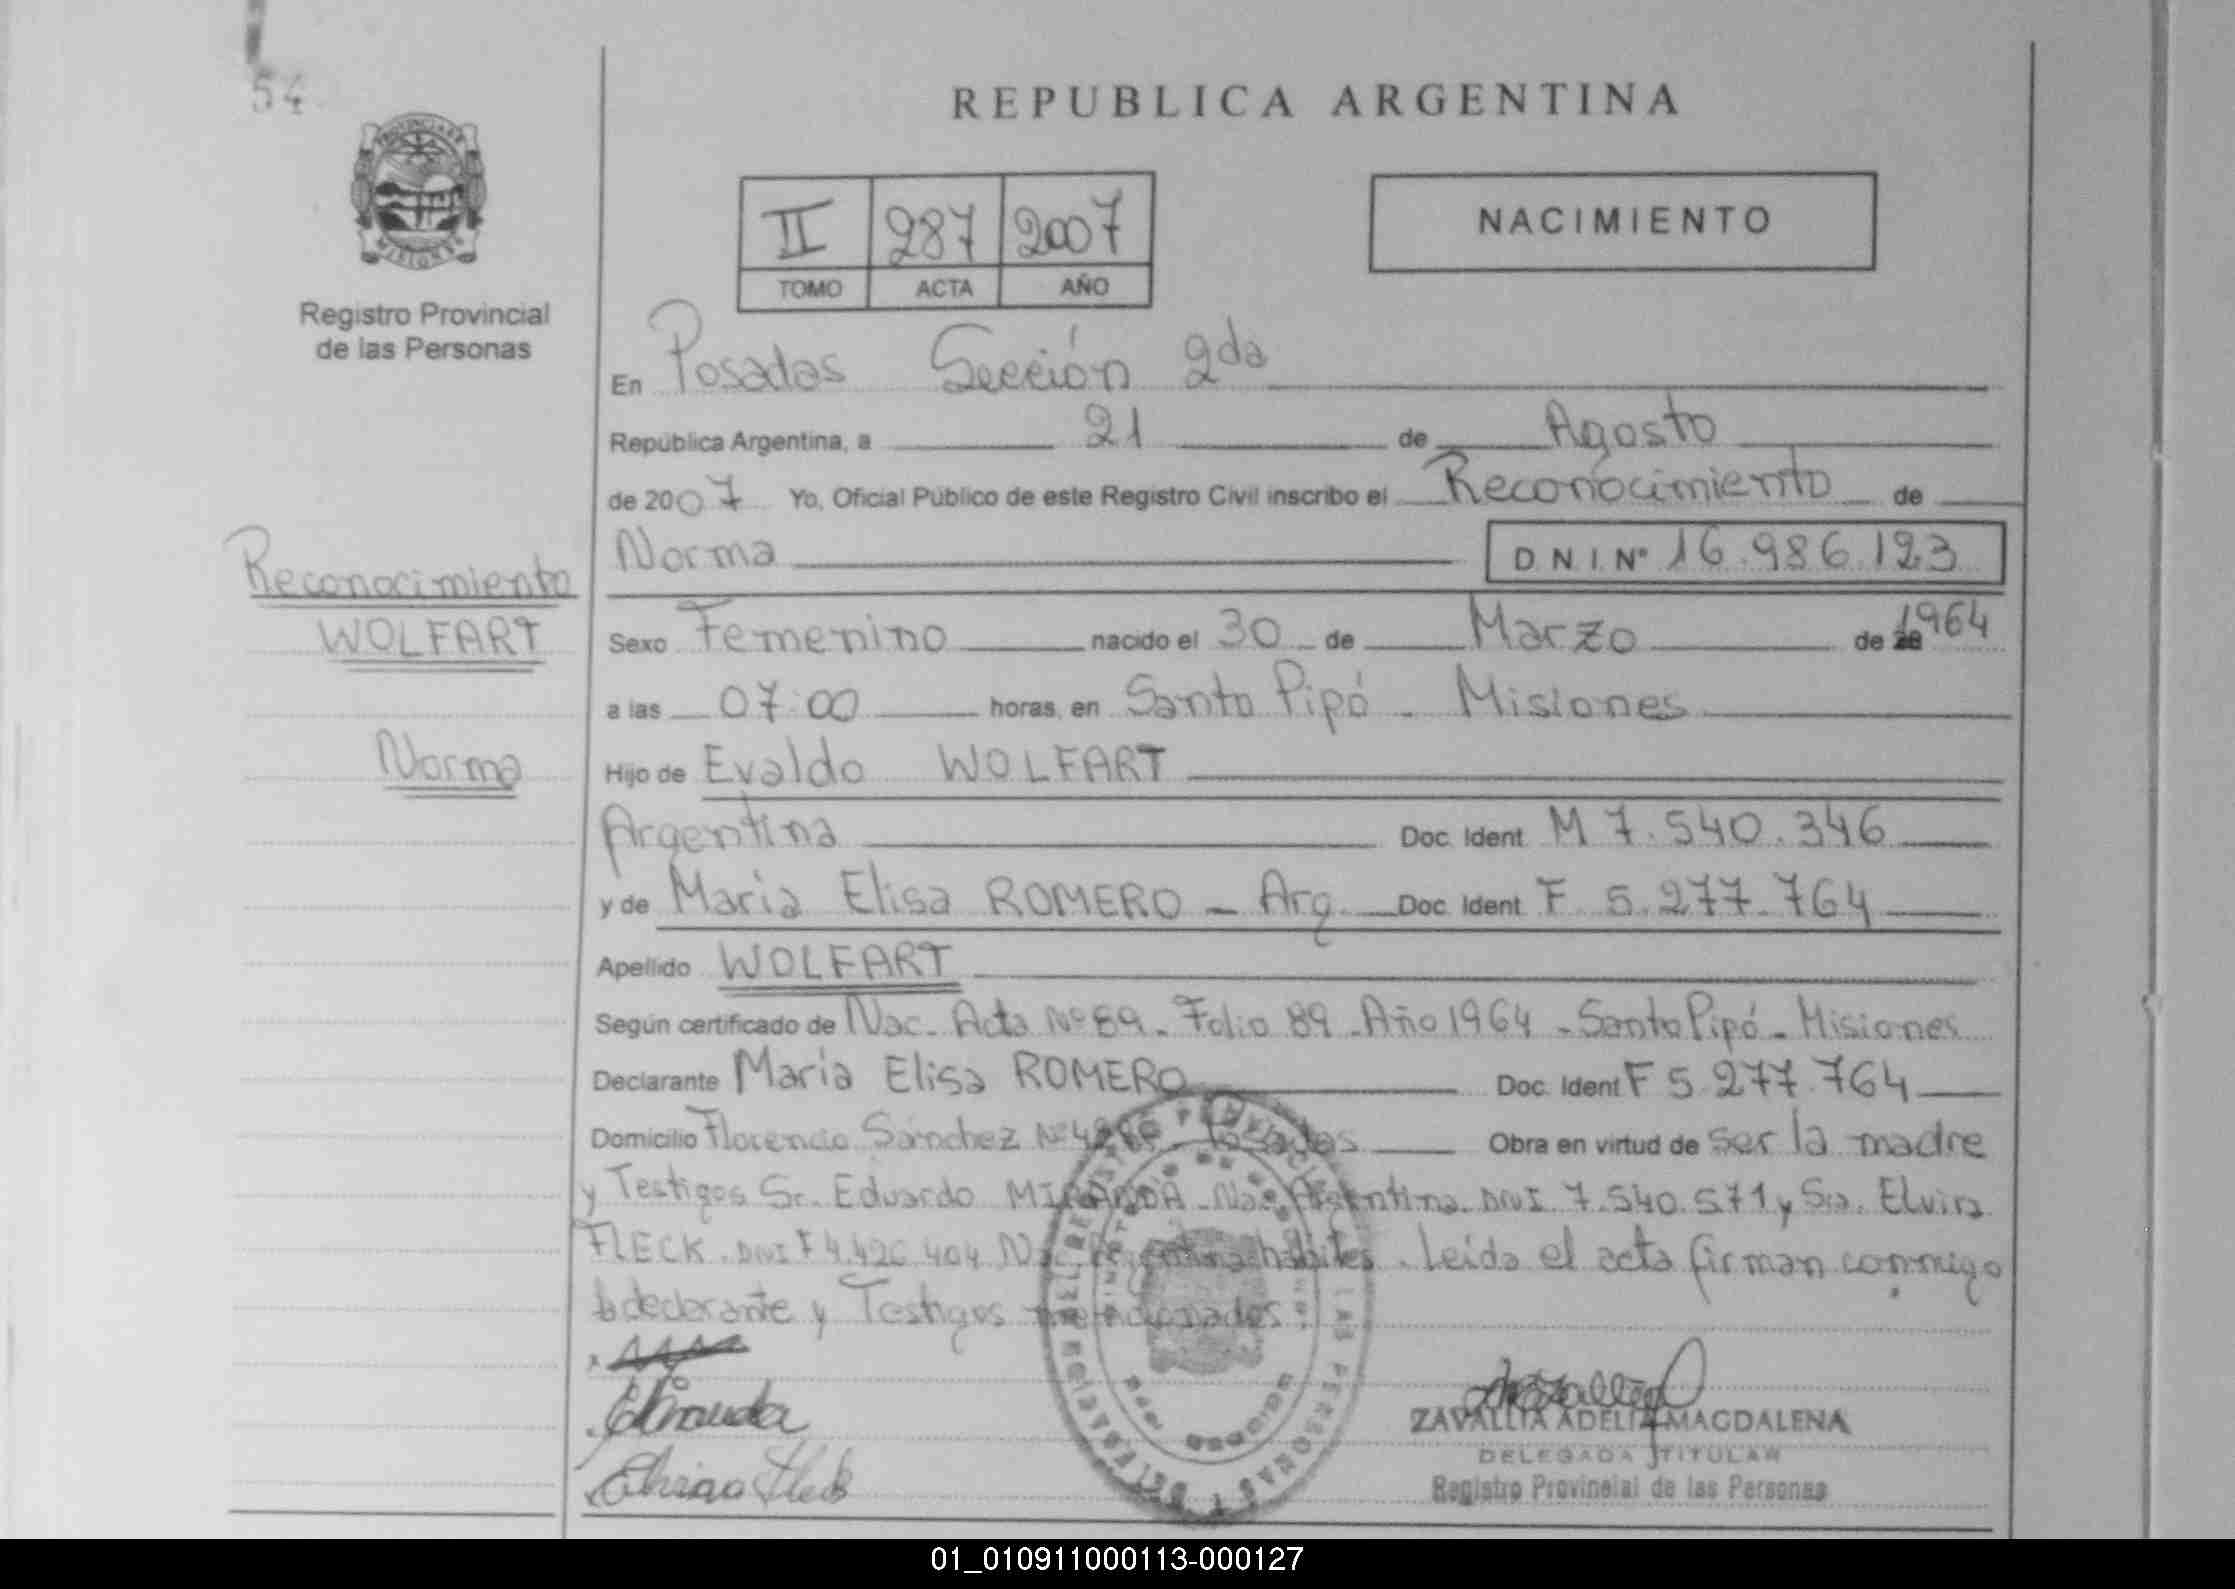 54
REPUBLICA ARGENTINA
PROVINCIA DE
MISIONES
Registro Provincial
de las Personas
II 287 2007
TOMO ACTA AÑO
NACIMIENTO
En Posadas Sección 2da
República Argentina, a 21 de Agosto
de 2007 Yo, Oficial Público de este Registro Civil inscribo el Reconocimiento de
Norma D.N.I. Nº 16.986.123
Reconocimiento
WOLFART
Norma
Sexo Femenino nacido el 30 de Marzo de 1964
a las 07:00 horas, en Santo Pipó - Misiones
Hijo de Evaldo WOLFART
Argentina Doc. Ident. M 7.540.346
y de Maria Elisa ROMERO - Arg. Doc. Ident. F 5.277.764
Apellido WOLFART
Según certificado de Nac. Acta Nº 89 - Folio 89 - Año 1964 - Santo Pipó - Misiones
Declarante María Elisa ROMERO Doc. Ident F 5.277.764
Domicilio Florencio Sánchez Nº Posadas Obra en virtud de ser la madre
y Testigos Sr. Eduardo MIRANDA - Nac. Argentina. DNI 7.540.571 y Sra. Elvira
FLECK. DNI F 4.426.404 Nac. Argentina habiles. Leída el acta firman conmigo
la declarante y Testigos mencionados.
EMiranda
Elvira Fleck
ZAVALLIA ADELIA MAGDALENA
DELEGADA TITULAR
Registro Provincial de las Personas
01_010911000113-000127